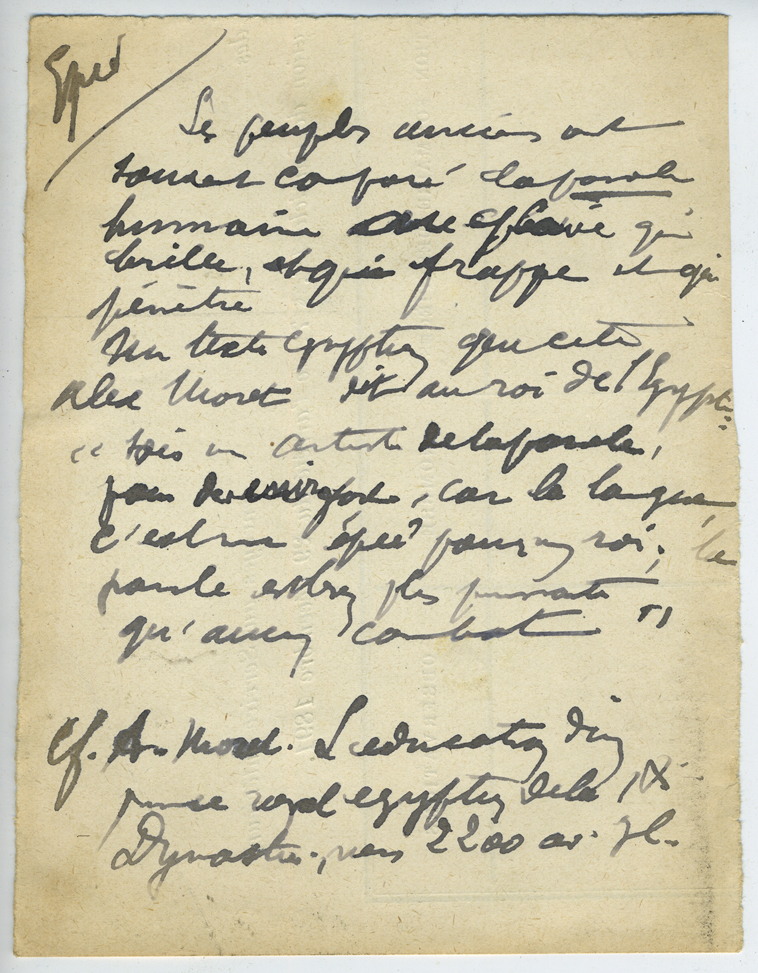 Epée
Les peuples anciens ont
souvent comparé la parole
humaine au glaive qui
brille, et qui frappe et qui
pénètre
Un texte égyptien que cite
Alex Moret dit au roi de l'Egypte:
"sois un artiste de la parole,
pour devenir fort, car la langue,
c'est une épée pour un roi; la
parole est bien plus puissante
qu'aucun combat"
Cf. A. Moret. L'education d'un
prince royal egyptien de la IX
Dynastie, vers 2200 av. JC.